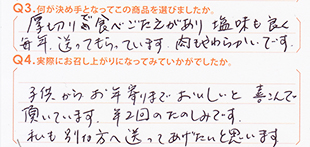 Q3.何が決め手となってこの商品を選びましたか。
厚切りで食べごたえがあり 塩味も良く
毎年、送ってもらっています。肉もやわらかいです。
Q4.実際にお召し上がりになってみていかがでしたか。
子供からお年寄りまでおいしいと喜こんで
頂いています。年2回のたのしみです。
私も別な方へ送ってあげたいと思います